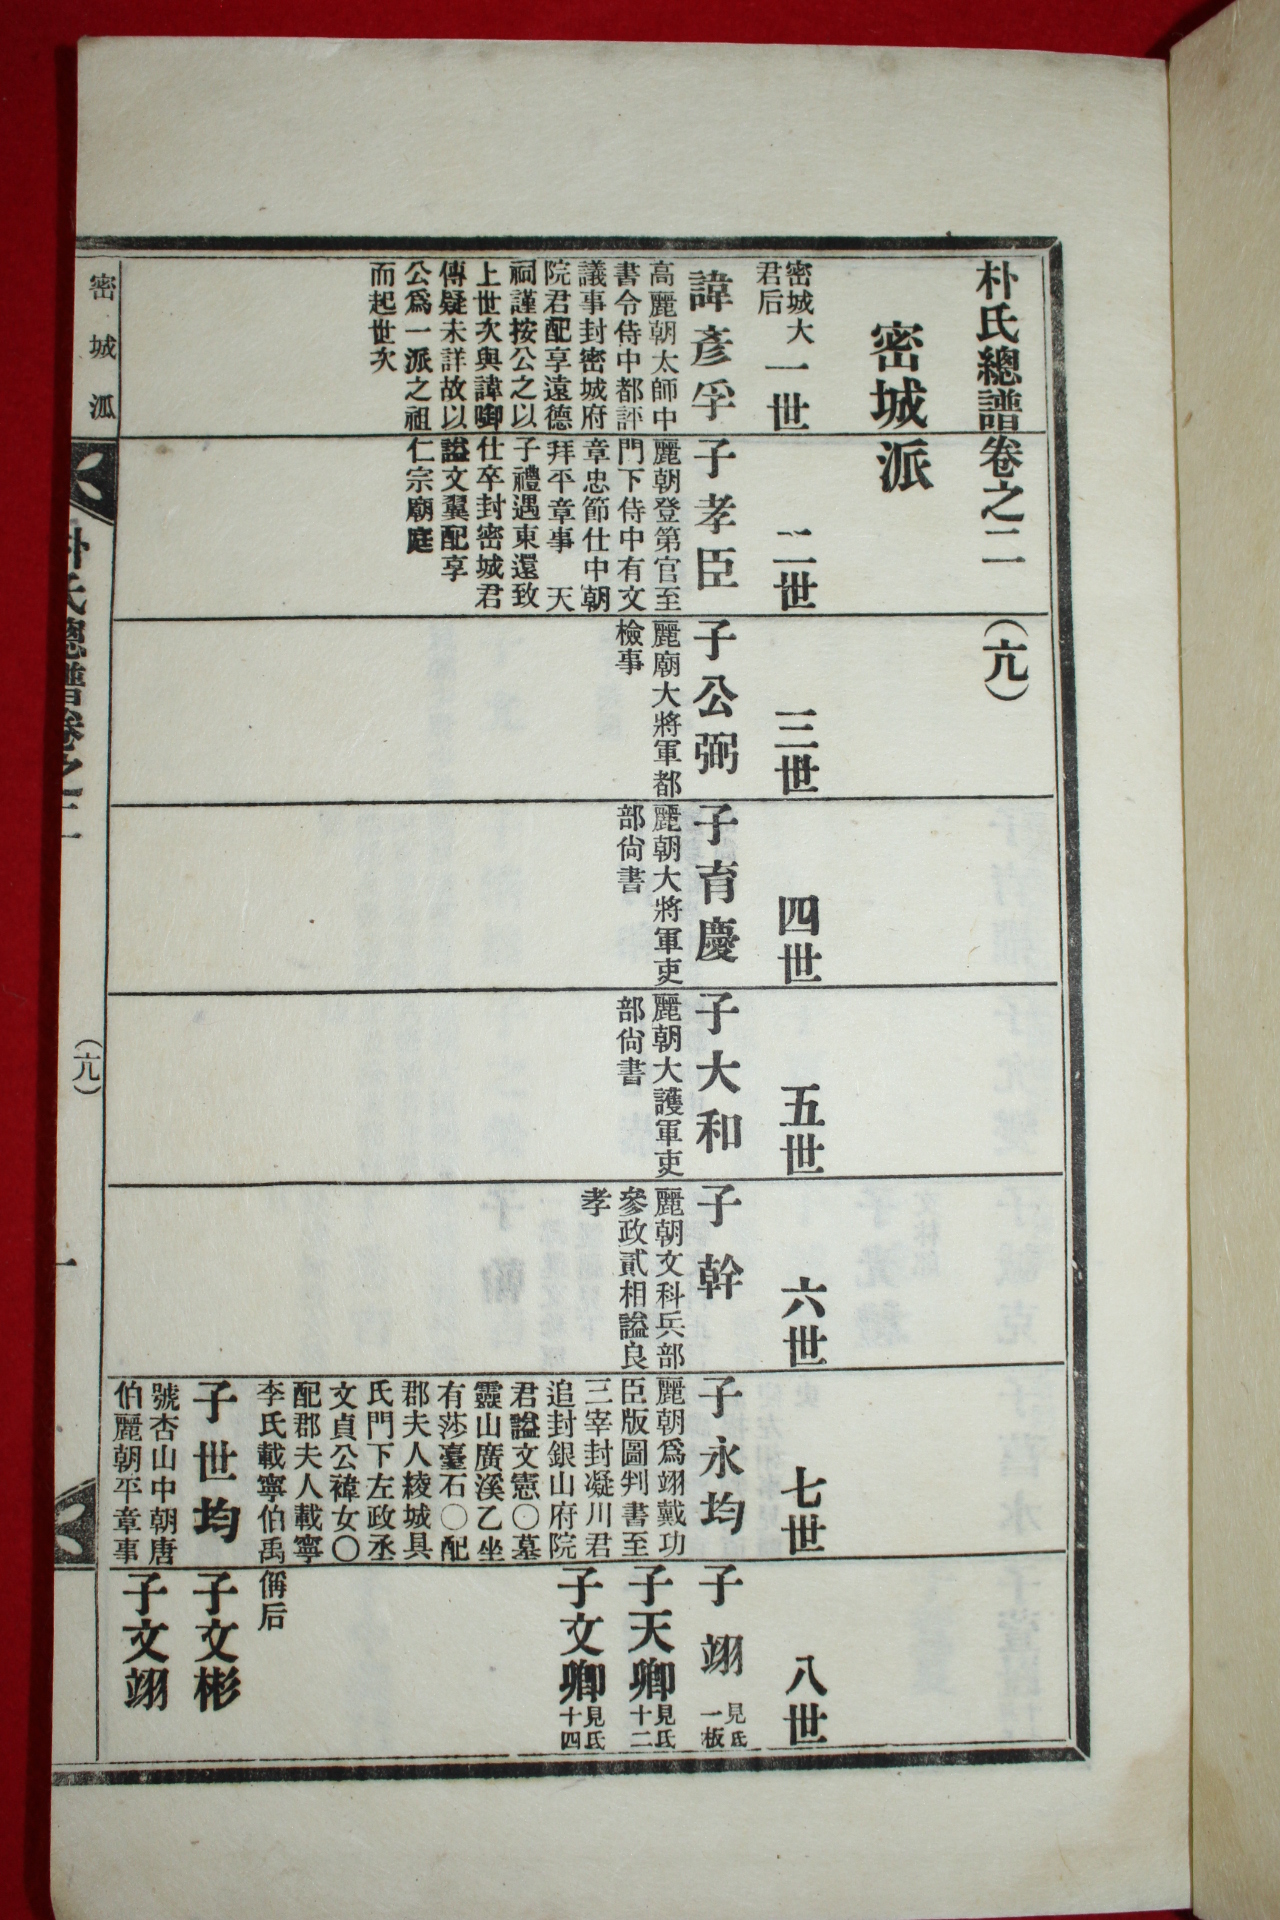 朴氏總譜卷之二 (亢)
密城派
密城大
君后
一世
諱彥孚
高麗朝太師中
書令侍中都評
議事封密城府
院君配享遠德
祠謹按公之以
上世次與諱卿
傳疑未詳故以
公爲一派之祖
而起世次
二世
子孝臣
麗朝登第官至
門下侍中有文
章忠節仕中朝
拜平章事 天
子禮遇東還致
仕卒封密城君
謚文翼配享
仁宗廟庭
三世
子公弼
麗廟大將軍都
檢事
四世
子育慶
麗朝大將軍吏
部尙書
五世
子大和
麗朝大護軍吏
部尙書
六世
子幹
麗朝文科兵部
參政貳相謚良
孝
七世
子永均
麗朝爲翊戴功
臣版圖判書至
三宰封凝川君
追封銀山府院
君謚文憲〇墓
靈山廣溪乙坐
有莎臺石〇配
郡夫人綾城具
氏門下左政丞
文貞公禕女〇
配郡夫人載寧
李氏載寧伯禹
偁后
子世均
號杏山中朝唐
伯麗朝平章事
八世
子翊
見氏
一板
子天卿
見氏
十二
子文卿
見氏
十四
子文彬
子文翊
密城派
朴氏總譜卷之二
(亢)
一